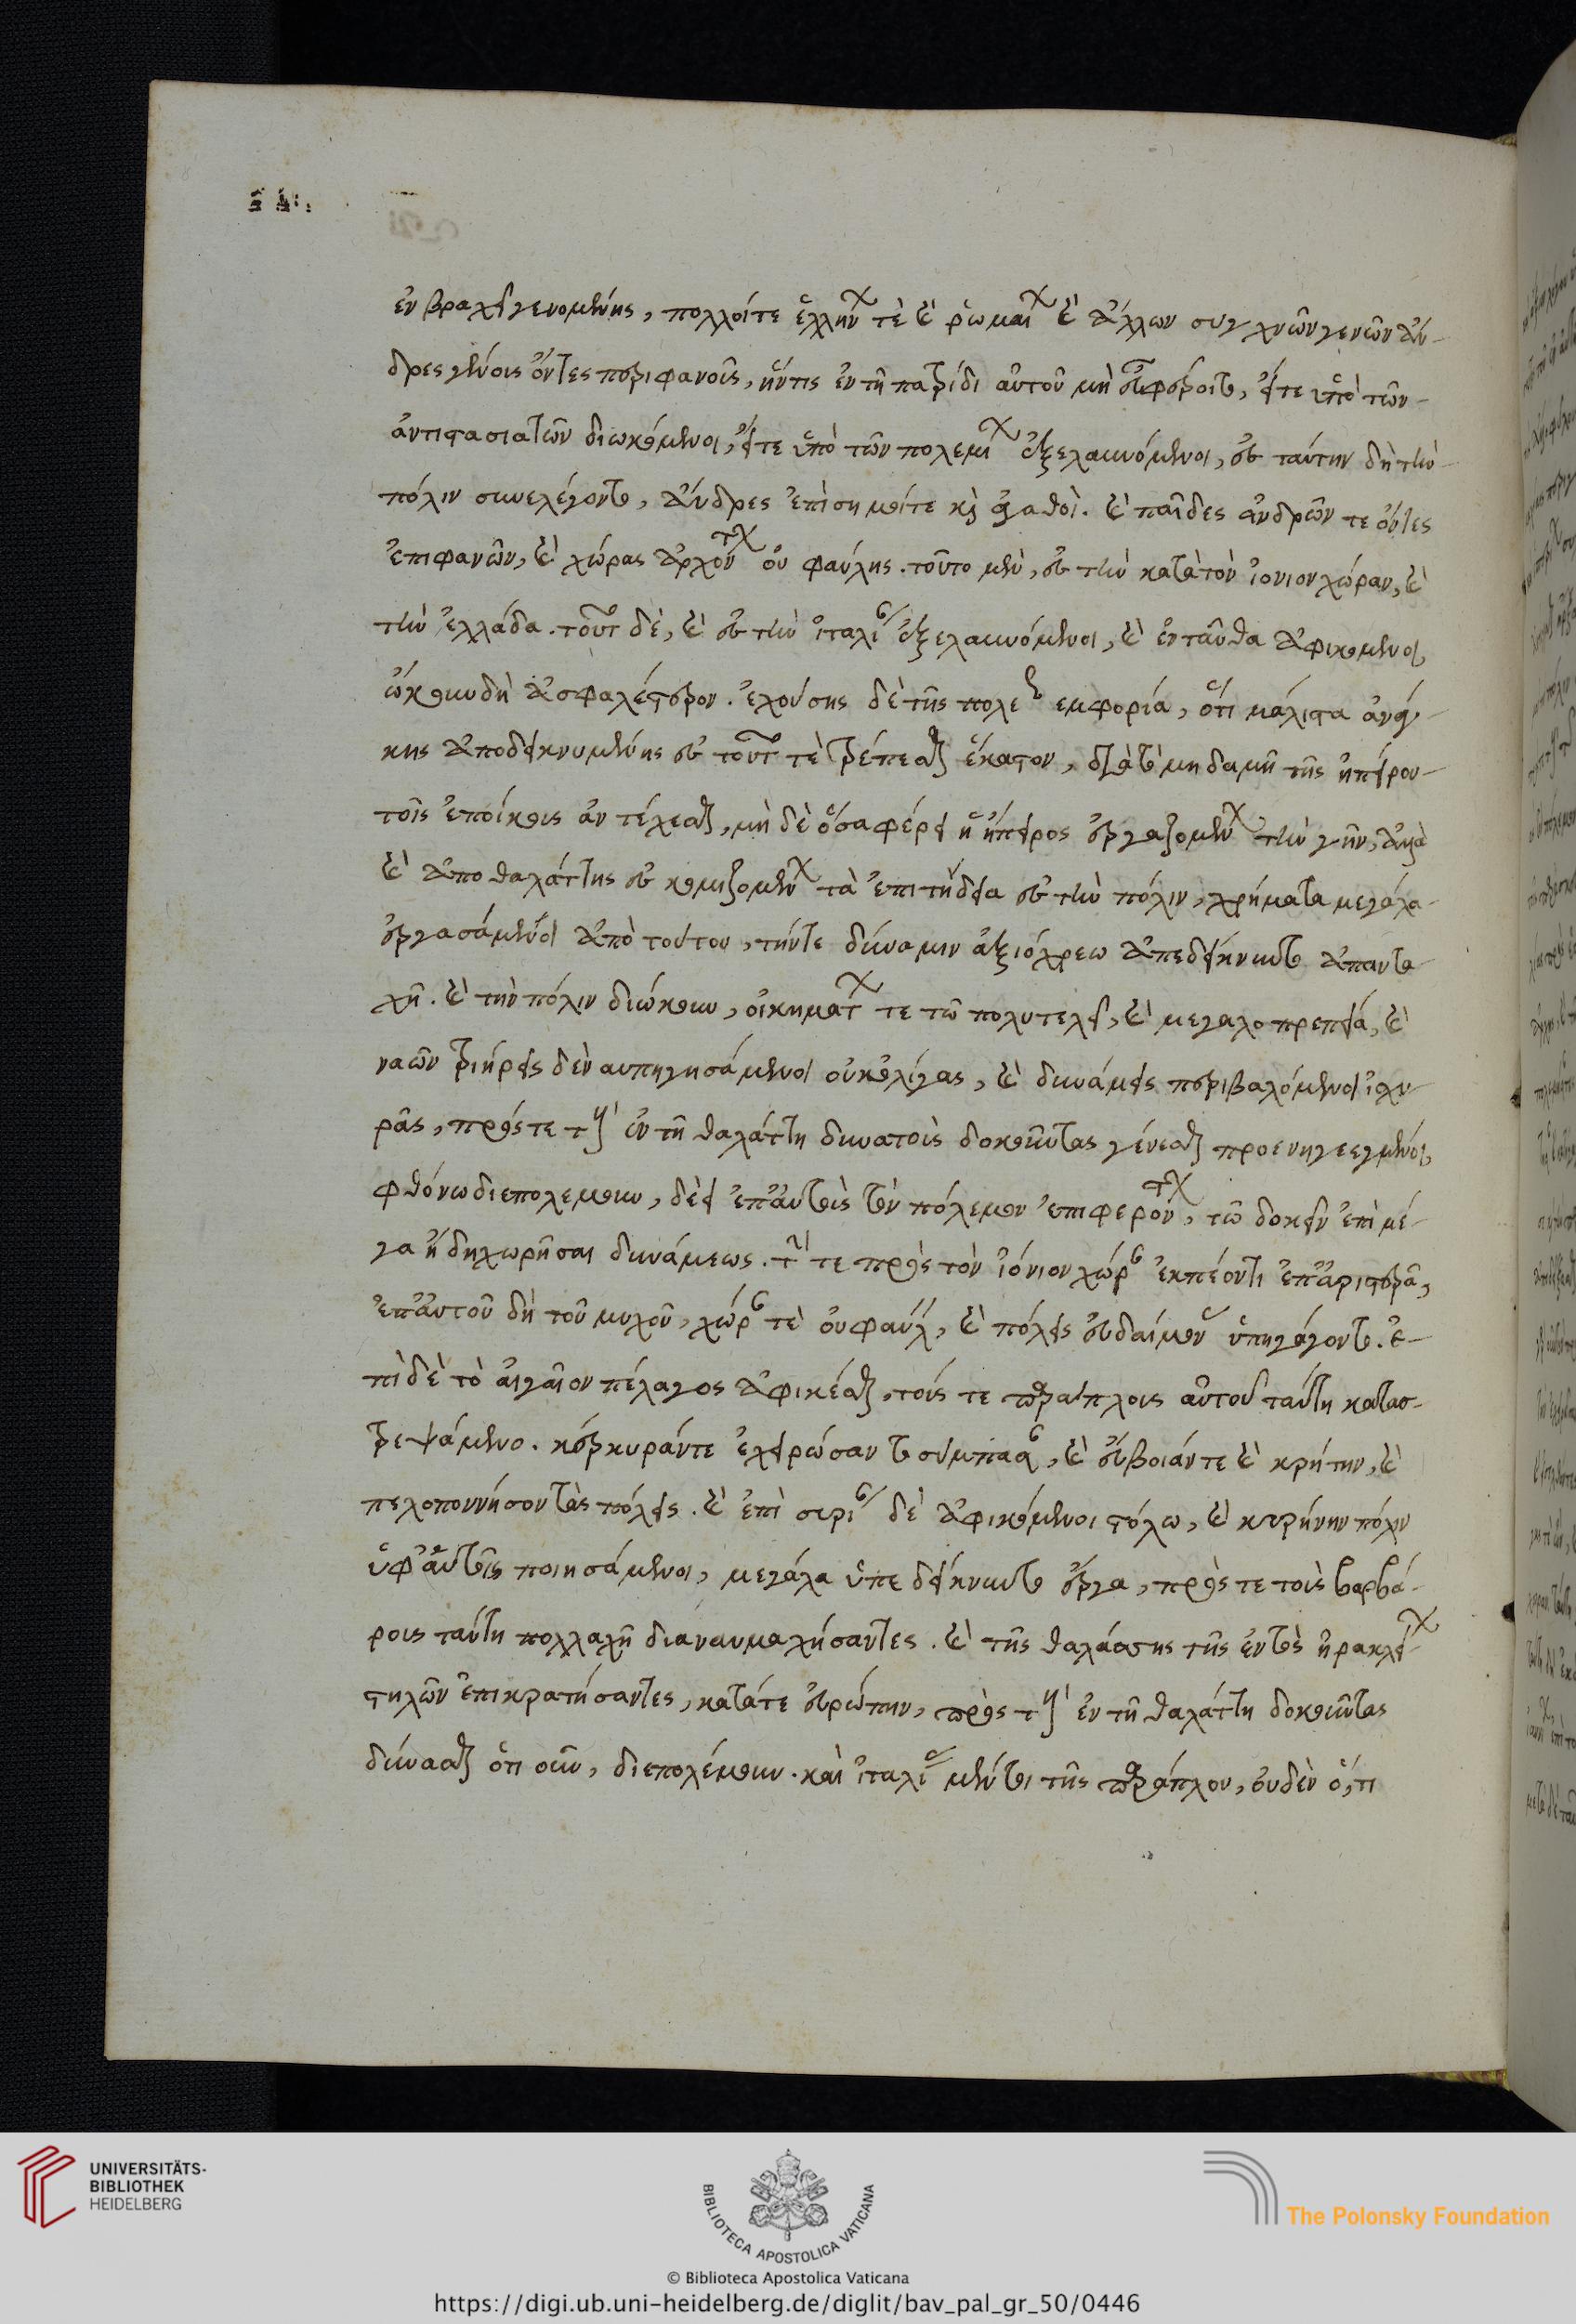 ἐν βραχεῖ γενομένης, πολλοίτε ἑλλήνων τὲ καὶ ῥωμαίων καὶ ἄλλων συγχνῶν γενῶν ἄν-
δρες γένοις ὄντες περιφανοῖς, ἥντις ἐν τῆ πατρίδι αὐτοῦ μὴ εὖ φέροιτο, εἴτε ὑπὸ τῶν
ἀντιστασιατῶν διωκόμενοι, εἴτε ὑπὸ τῶν πολεμίων ἐξελαυνόμενοι, ἐς ταύτην δὴ τὴν
πόλιν συνελέγοντο, ἄνδρες ἐπίσημοίτε καὶ ἀγαθοὶ. καὶ παῖδες ἀνδρῶν τε ὄντες
ἐπιφανῶν, καὶ χώρας ἀρχόντων οὐ φαύλης. τοῦτο μὲν, ἐς τὴν κατὰ τὸν ἰόνιον χώραν, καὶ
τὴν ἑλλάδα. τοῦτο δὲ, καὶ ἐς τὴν ἰταλίαν ἐξελαυνόμενοι, καὶ ἐνταῦθα ἀφικομενοι,
ὤκουν δὴ ἀσφαλέστερον. ἐχούσης δὲ τῆς πολεως εμφορία, ὅτι μάλιστα ἀνάγ-
κης ἀποδεικνυμένης ἐς τοῦτο τὲ τρέπεσθαι ἕκαστον, διὰ τὸ μηδαμῆ τῆς ἠπείρου
τοῖς ἐποίκοις ἀντέχεσθαι, μὴ δὲ ὅσα φέρει ἡ ἤπειρος ἐργαζομένων τὴν γῆν, ἀλλὰ
καὶ ἀπο θαλάττης ἐς κομιζομένων τὰ ἐπιτήδεια ἐς τὴν πόλιν, χρήματα μεγάλα
ἐργασάμενοι ἀπὸ τούτου, τήντε δύναμιν ἀξιόχρεω ἀπεδείκνυντο ἀπαντα-
χῆ. καὶ τὴν πόλιν διώκουν, οἰκημάτων τε τῶ πολυτελεῖ, καὶ μεγαλοπρεπεία, καὶ
ναῶν τριήρεις δὲ ναυπηγησάμενοι οὐκ ὀλίγας, καὶ δυνάμεις περιβαλόμενοι ἰσχυ-
ρᾶς, πρός τε τοὺς ἐν τῆ θαλάττη δυνατοὺς δοκοῦντας γένεσθαι προενηγεεγμένοι,
φθόνω διεπολεμουν, δὲ ἐπ' αὐτοὺς τὸν πόλεμον ἐπιφερόντων, τῶ δοκεῖν ἐπὶ μέ-
γα ἤδη χωρῆσαι δυνάμεως. τήν τε πρὸς τὸν ἰόνιον χώραν ἐκπέοντι ἐπ' ἀριστερᾶ,
ἐπ' αὐτοῦ δὴ τοῦ μυχοῦ, χώραν τὲ οὐ φαύλην, καὶ πόλεις εὐδαίμονας ὑπηγάγοντο. ἐ-
πὶ δὲ τὸ αἰγαῖον πέλαγος ἀφικέσθαι, τούς τε παράπλους αὐτοῦ ταύτη κατασ-
τρεψάμενο. κέρκυράντε ἐχειρώσαντο σύμπασαν, καὶ εὔβοιάντε καὶ κρήτην, καὶ
πελοποννήσον τὰς πόλεις. καὶ ἐπὶ συρίαν δὲ ἀφικόμενοι στόλω, καὶ κυρήνην πόλιν
ὑφ' αὑτοῖς ποιησάμενοι, μεγάλα ὑπεδείκνυντο ἔργα, πρός τε τοὺς βαρβά-
ρους ταύτη πολλαχῆ διαναυμαχήσαντες. καὶ τῆς θαλάσσης τῆς ἐντὸς ἡρακλείων
στηλῶν ἐπικρατήσαντες, κατάτε εὐρώπην, πρὸς τοὺς ἐν τῆ θαλάττη δοκοῦντας
δύνασθαι ὅτι οὖν, διεπολέμουν. καὶ ἰταλίας μέντοι τῆς παράπλου, οὐδὲν ὅ,τι
UNIVERSITÄTS-
BIBLIOTHEK
HEIDELBERG
BIBLIOTECA APOSTOLICA VATICANA
© Biblioteca Apostolica Vaticana
The Polonsky Foundation
https://digi.ub.uni-heidelberg.de/diglit/bav_pal_gr_50/0446